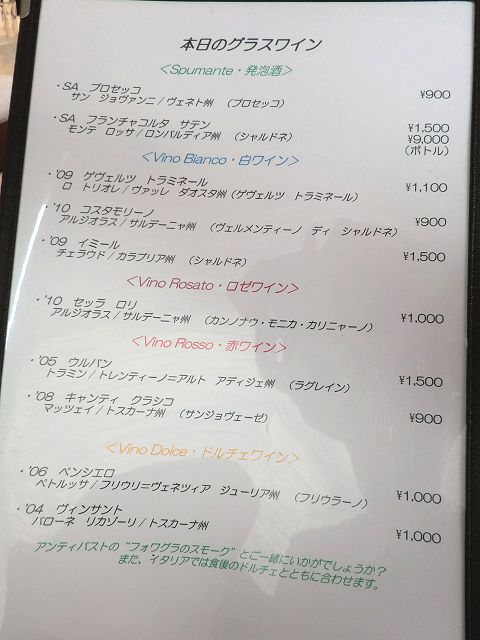 本日のグラスワイン
＜Spumante・発泡酒＞
・SA　プロセッコ
サン　ジョヴァンニ／ヴェネト州　（プロセッコ）　¥900
・SA　フランチャコルタ　サテン
モンテ　ロッサ／ロンバルディア州　（シャルドネ）　¥1,500
¥9,000
（ボトル）
＜Vino Bianco・白ワイン＞
・'09　ゲヴェルツ　トラミネール
ロ　トリオレ／ヴァッレ　ダオスタ州（ゲヴェルツ　トラミネール）　¥1,100
・'10　コスタモリーノ
アルジオラス／サルデーニャ州　（ヴェルメンティーノ　ディ　シャルドネ）　¥900
・'09　イミール
チェラウド／カラブリア州　（シャルドネ）　¥1,500
＜Vino Rosato・ロゼワイン＞
・'10　セッラ　ロリ
アルジオラス／サルデーニャ州　（カンノナウ・モニカ・カリニャーノ）　¥1,000
＜Vino Rosso・赤ワイン＞
・'05　ウルバン
トラミン／トレンティーノ＝アルト　アディジェ州　（ラグレイン）　¥1,500
・'08　キャンティ　クラシコ
マッツェイ／トスカーナ州　（サンジョヴェーゼ）　¥900
＜Vino Dolce・ドルチェワイン＞
・'06　ペンシエロ
ペトルッサ／フリウリ＝ヴェネツィア　ジューリア州　（フリウラーノ）　¥1,000
・'04　ヴィンサント
バローネ　リカゾーリ／トスカーナ州　¥1,000
アンティパストの“フォワグラのスモーク”とご一緒にいかがでしょうか？
また、イタリアでは食後のドルチェとともに合わせます。